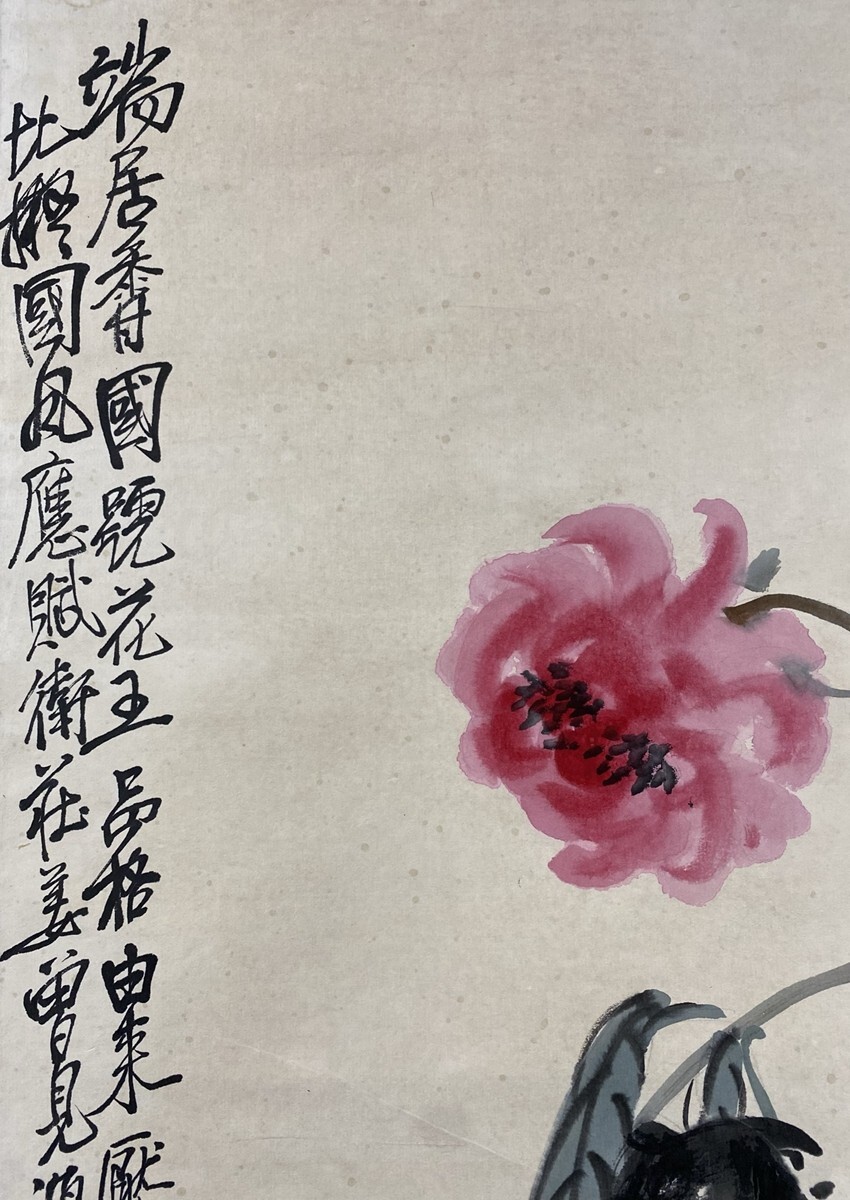 端居香國號花王品格由來厭
比擬國風應賦衛莊姜曾見